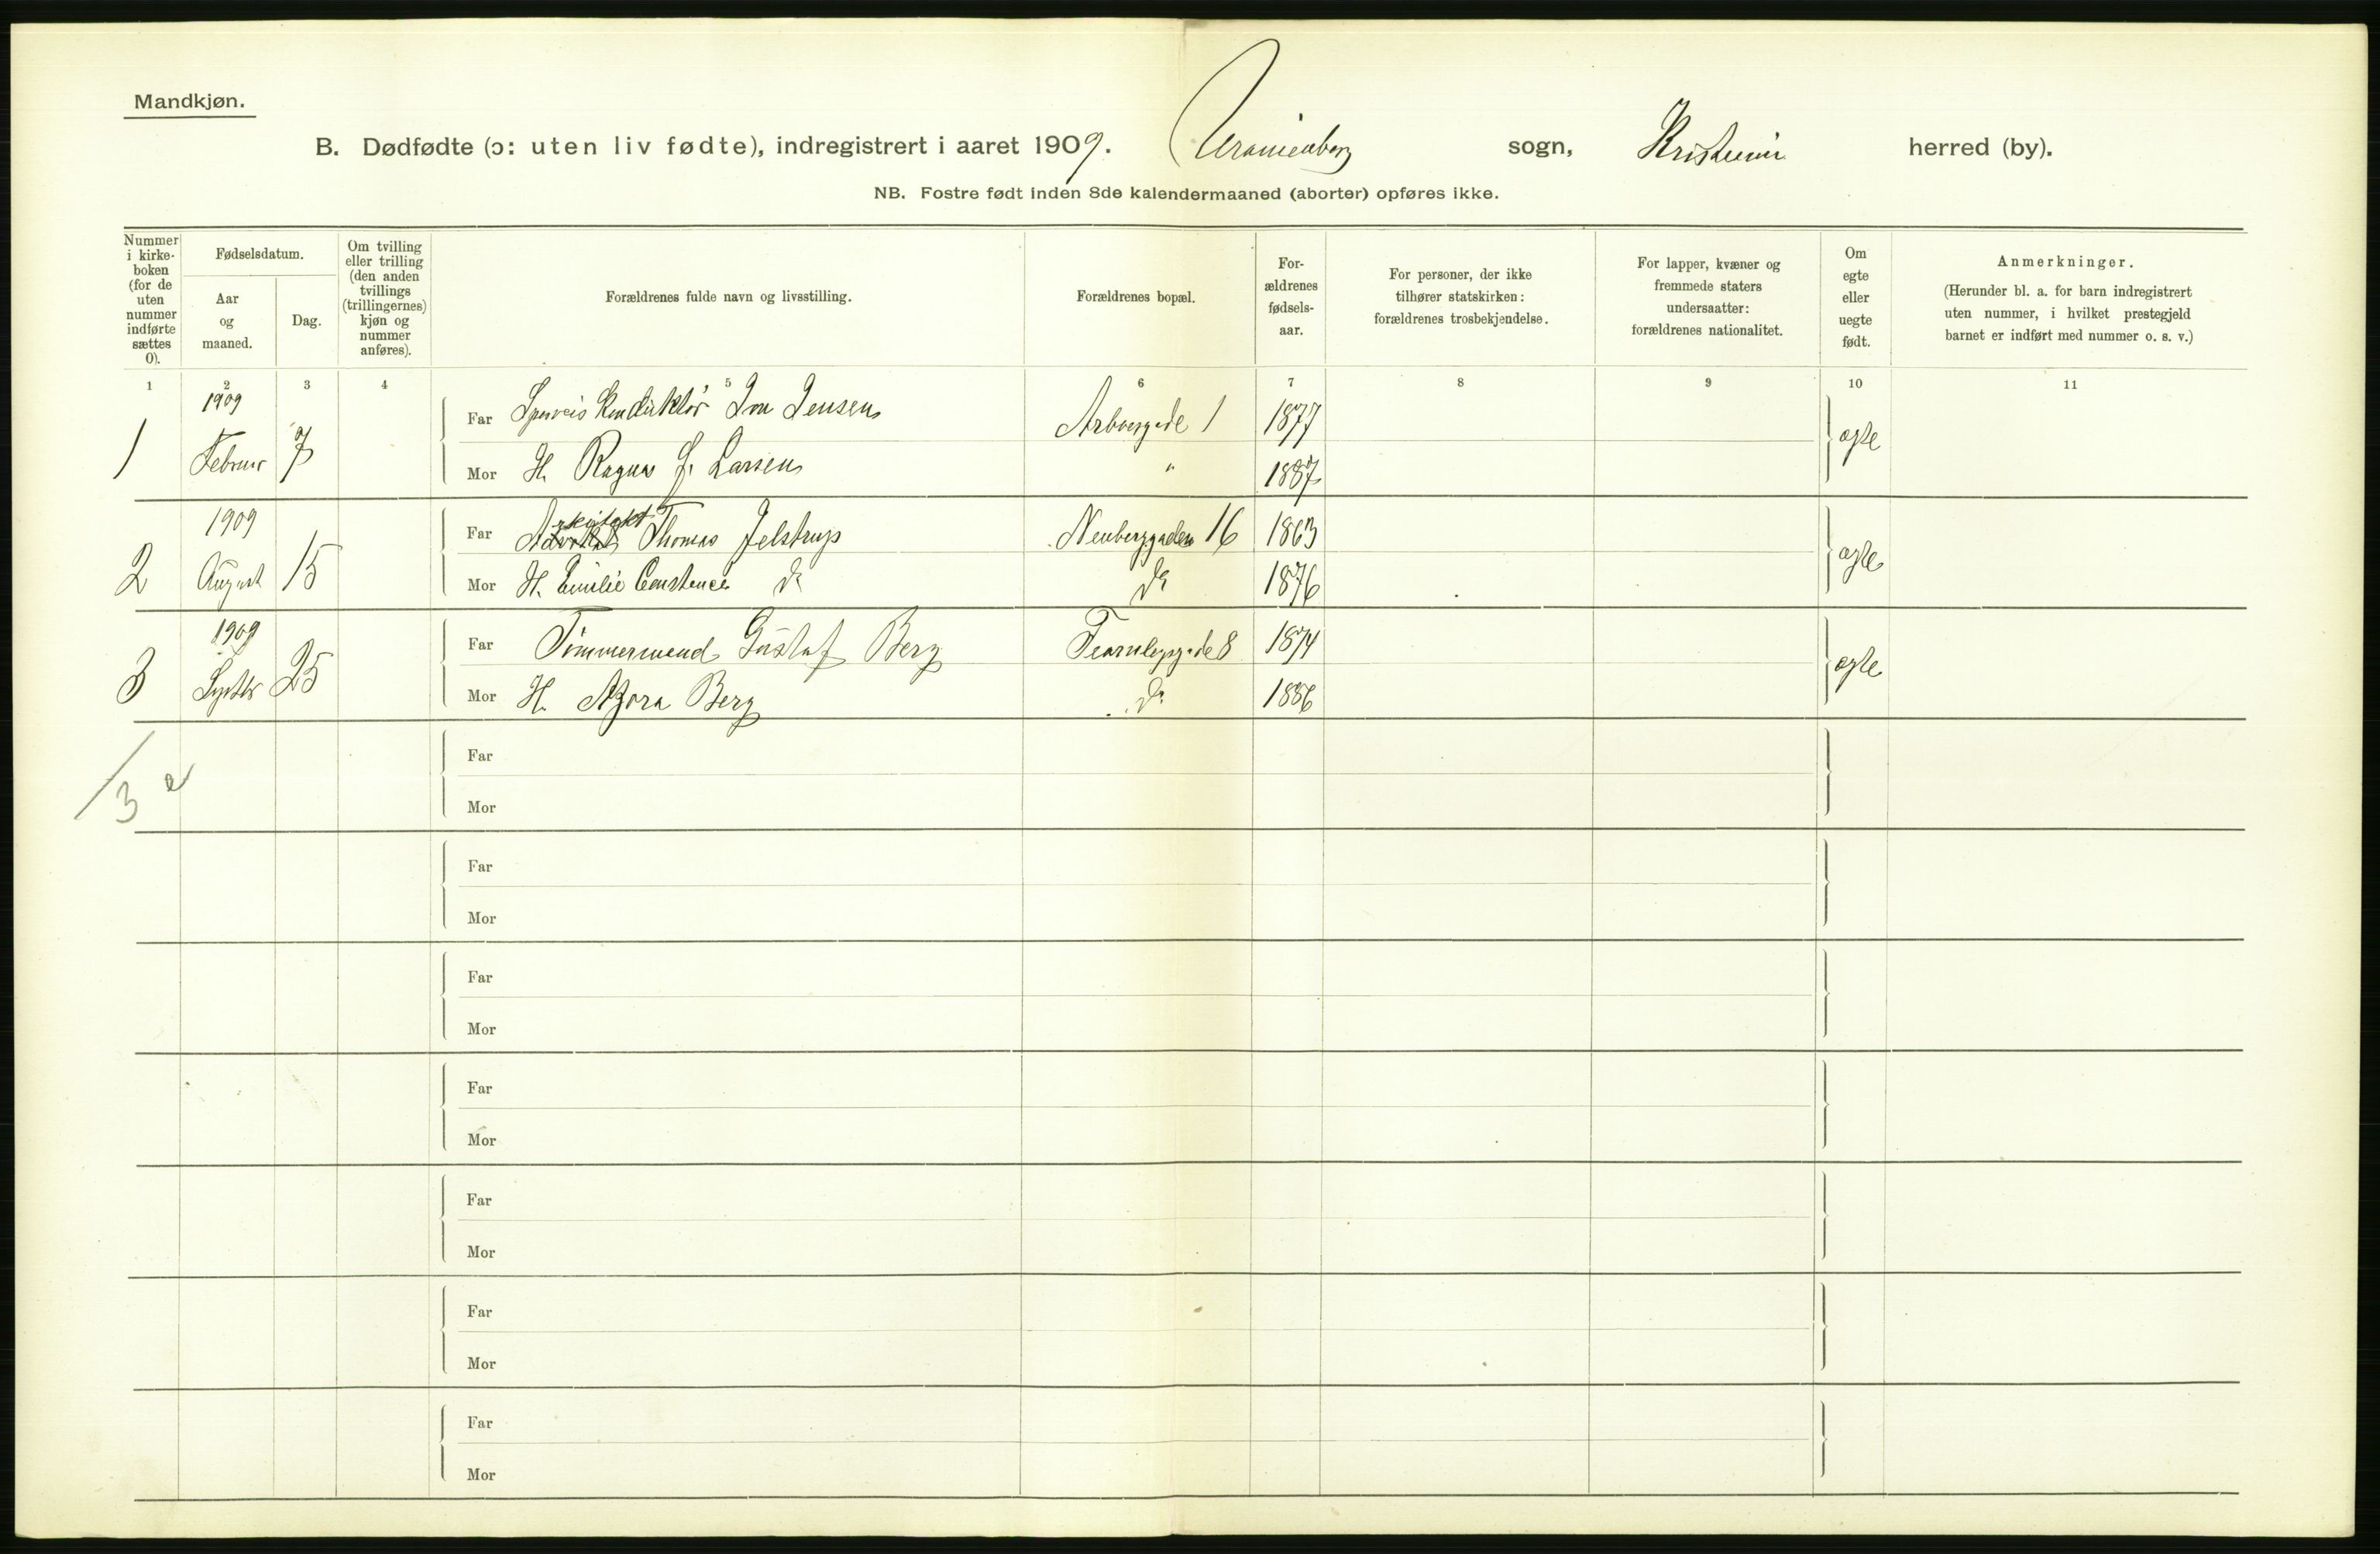 Mandkjøn.
B. Dødfødte (ɔ: uten liv fødte), indregistrert i aaret 1909. Uranienborg sogn, Kristiania herred (by).
NB. Fostre født inden 8de kalendermaaned (aborter) opføres ikke.
Nummer i kirke-boken (for de uten nummer indførte sættes 0).
Fødselsdatum.
Aar og maaned.
Dag.
Om tvilling eller trilling (den anden tvillings (trillingernes) kjøn og nummer anføres).
Forældrenes fulde navn og livsstilling.
Forældrenes bopæl.
For-ældrenes fødsels-aar.
For personer, der ikke tilhører statskirken: forældrenes trosbekjendelse.
For lapper, kvæner og fremmede staters undersaatter: forældrenes nationalitet.
Om egte eller uegte født.
Anmerkninger.
(Herunder bl. a. for barn indregistrert uten nummer, i hvilket prestegjeld barnet er indført med nummer o. s. v.)
1 2 3 4 5 6 7 8 9 10 11
1 1909 Februar 7
Far Sporveis Konduktör Jensen 1 1877 ægte
Mor H. Ragna Larsen " 1887
2 1909 August 15
Far Arkitekt Thomas Jelstrup Neuberggaden 16 1863 ægte
Mor H. Emilie Constance do do 1876
3 1909 Septbr 25
Far Tømmermand Gustaf Berg Fearnleysgade 8 1874 ægte
Mor H. Berg do 1886
3
Far
Mor
Far
Mor
Far
Mor
Far
Mor
Far
Mor
Far
Mor
Far
Mor